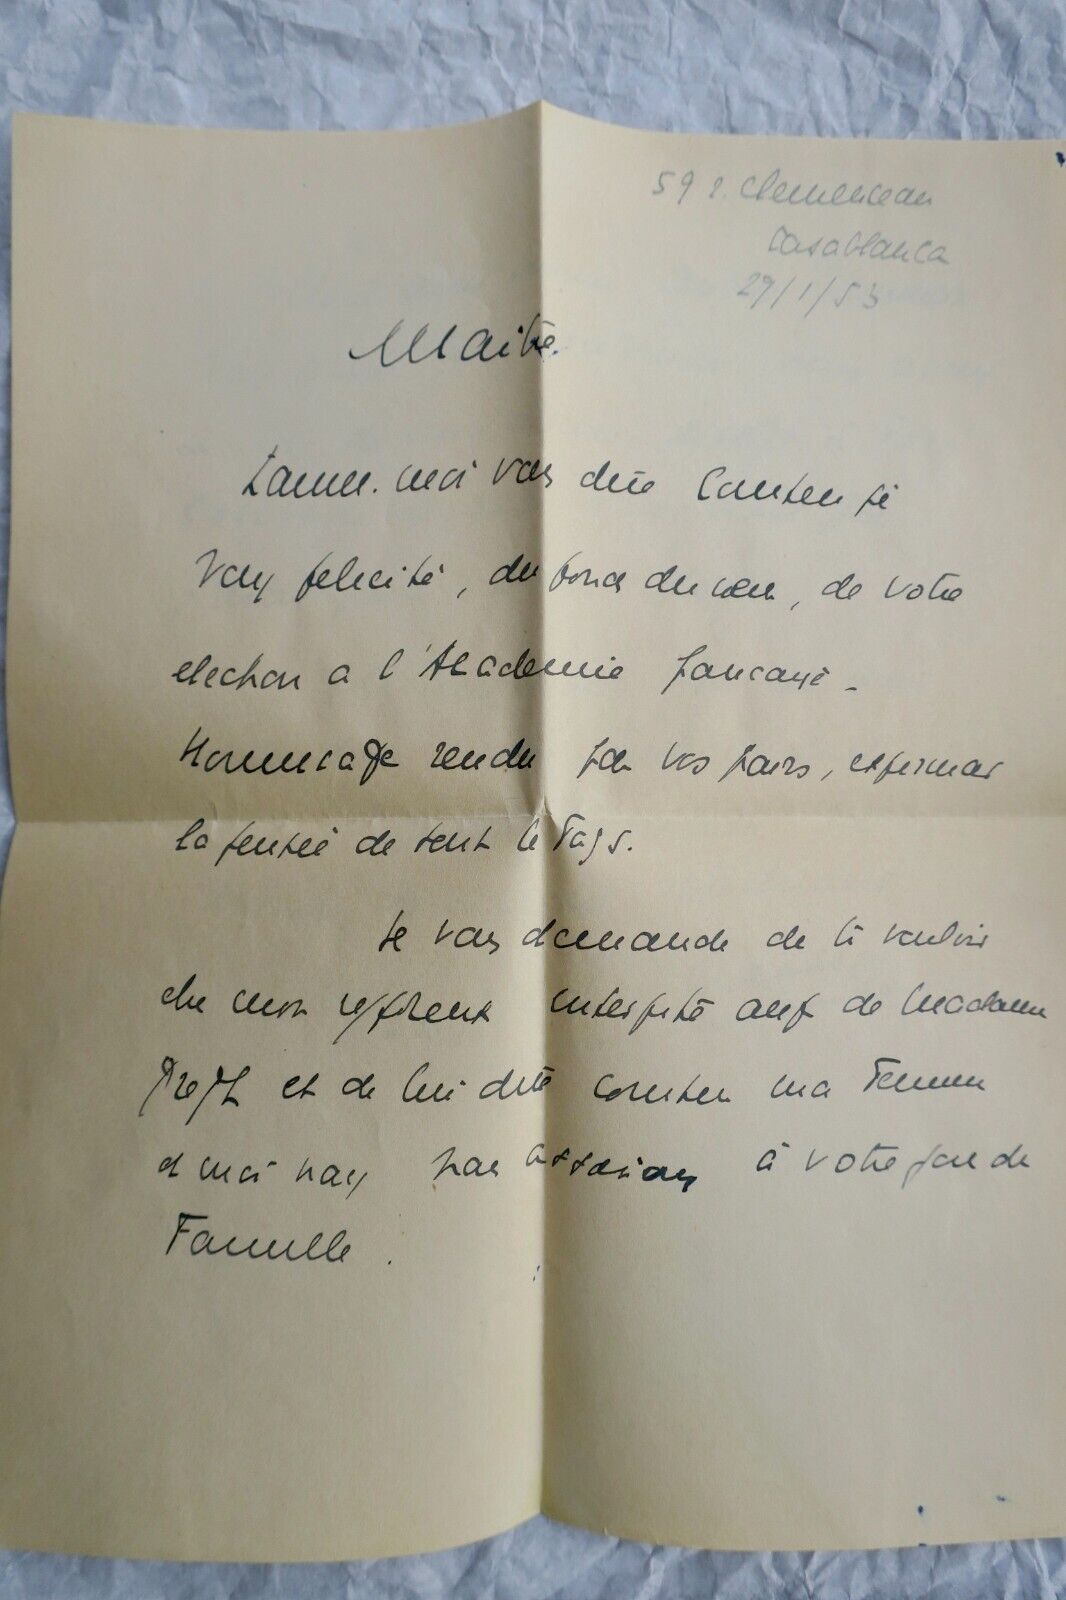 59 r. Clemenceau
Casablanca
29/1/53
Maitre.
Laissez. moi vous dire Combien je
vous felicite, du fond du coeur, de votre
election a l'Academie francaise.
Hommage rendu par vos pairs, exprimant
la pensée de tout le Pays.
Je vous demande de bien vouloir
être mon interprète auprès de Madame
et de lui dire combien ma Femme
et moi nous nous associons à votre grande
Famille.